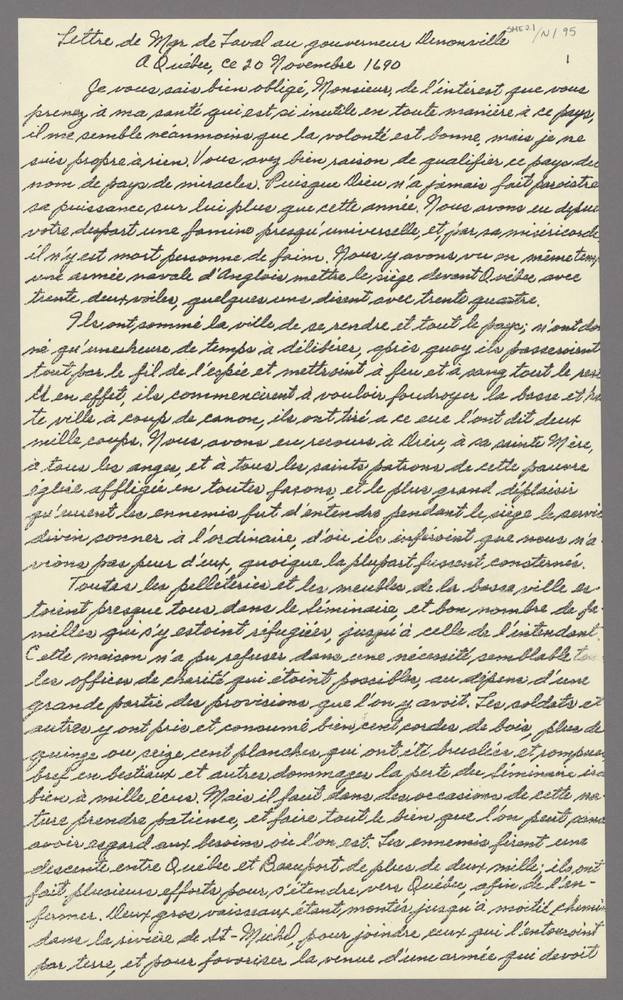 SME 2.1/N/95
1
Lettre de Mgr de Laval au gouverneur Denonville
A Québec, ce 20 Novembre 1690
Je vous sais bien obligé, Monsieur, de l'intérest que vous
prenez à ma santé qui est si inutile en toute manière à ce pays,
il me semble néanmoins que la volonté est bonne, mais je ne
suis propre à rien. Vous avez bien raison de qualifier ce pays du
nom de pays de miracles. Puisque Dieu n'a jamais fait paroistre
sa puissance sur lui plus que cette année. Nous avons eu depuis
votre départ une famine presqu'universelle, et, par sa miséricorde
il n'y est mort personne de faim. Nous y avons vu en même temps
une armée navale d'Anglois mettre le siège devant Québec avec
trente deux voiles, quelques uns disent avec trente quatre.
Ils ont sommé la ville de se rendre et tout le pays; n'ont don
né qu'une heure de temps à délibérer, après quoy ils passeroient
tout par le fil de l'espée et mettroient à feu et à sang tout le reste
Et en effet, ils commencèrent à vouloir foudroyer la basse et hau
te ville à coup de canon, ils ont tiré a ce que l'ont dit deux
mille coups. Nous avons eu recours à Dieu, à sa sainte Mère,
à tous les anges, et à tous les saints patrons de cette pauvre
église affligée en toutes façons, et le plus grand déplaisir
qu'eurent les ennemis fut d'entendre pendant le siège le servic
divin sonner à l'ordinaire, d'où ils inféroient que nous n'a
vions pas peur d'eux, quoique la plupart fussent consternés.
Toutes les pelleteries et les meubles de la basse ville es-
toient presque tous dans le séminaire, et bon nombre de fa-
milles qui s'y estoient réfugiées, jusqu'à celle de l'intendant.
Cette maison n'a pu refuser dans une nécessité semblable to
les offices de charité qui étoient possibles, au dépens d'une
grande partie des provisions que l'on y avoit. Les soldats et
autres y ont pris et consumé bien cent cordes de bois, plus de
quinze ou seize cent planches qui ont été bruslées et rompues
bref en bestiaux et autres dommages la perte du séminaire ira
bien à mille écus. Mais il faut dans des occasions de cette na-
ture prendre patience, et faire tout le bien que l'on peut sans
avoir égard aux besoins où l'on est. Les ennemis firent une
descente entre Québec et Beauport de plus de deux mille; ils ont
fait plusieurs efforts pour s'étendre vers Québec, afin de l'en-
fermer. Deux gros vaisseaux étant montés jusqu'à moitié chemin
dans la rivière de St-Michel, pour joindre ceux qui l'entouroient
par terre, et pour favoriser la venue d'une armée qui devoit